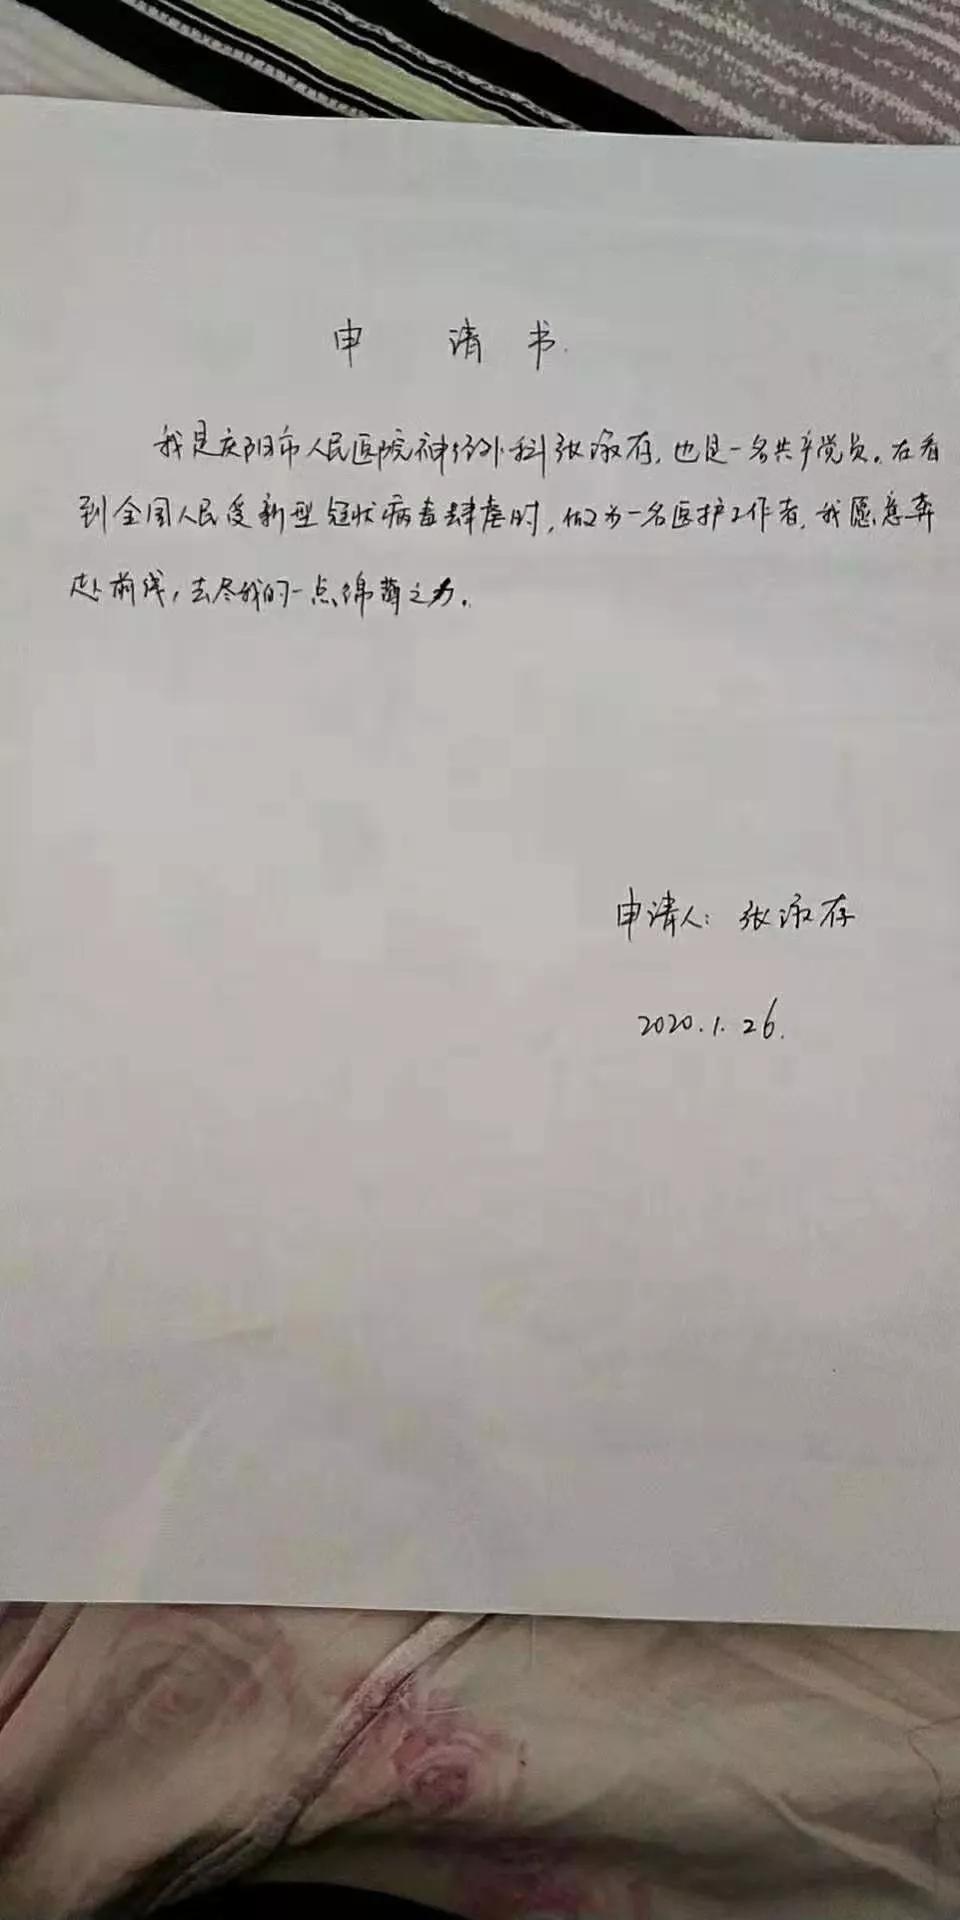 申请书
我是庆阳市人民医院神经外科张淑存,也是一名共产党员。在看
到全国人民受新型冠状病毒肆虐时,做为一名医护工作者,我愿意奔
赴前线,去尽我的一点绵薄之力。
申请人:张淑存
2020.1.26.